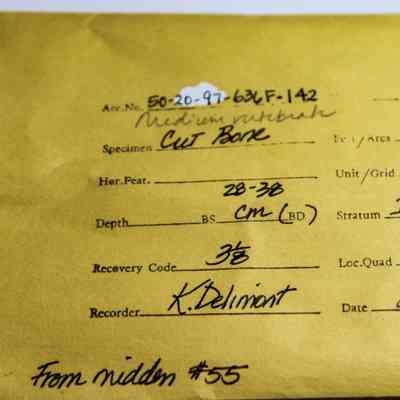 Acc.No. 50-20-97-636F-142
Medium vertebrate
Specimen Cut Bone
Hor.Feat. Unit/Grid
28-38
Depth BS cm (BD) Stratum
Recovery Code 3 1/8 Loc.Quad
Recorder K. Delimont Date
From midden #55